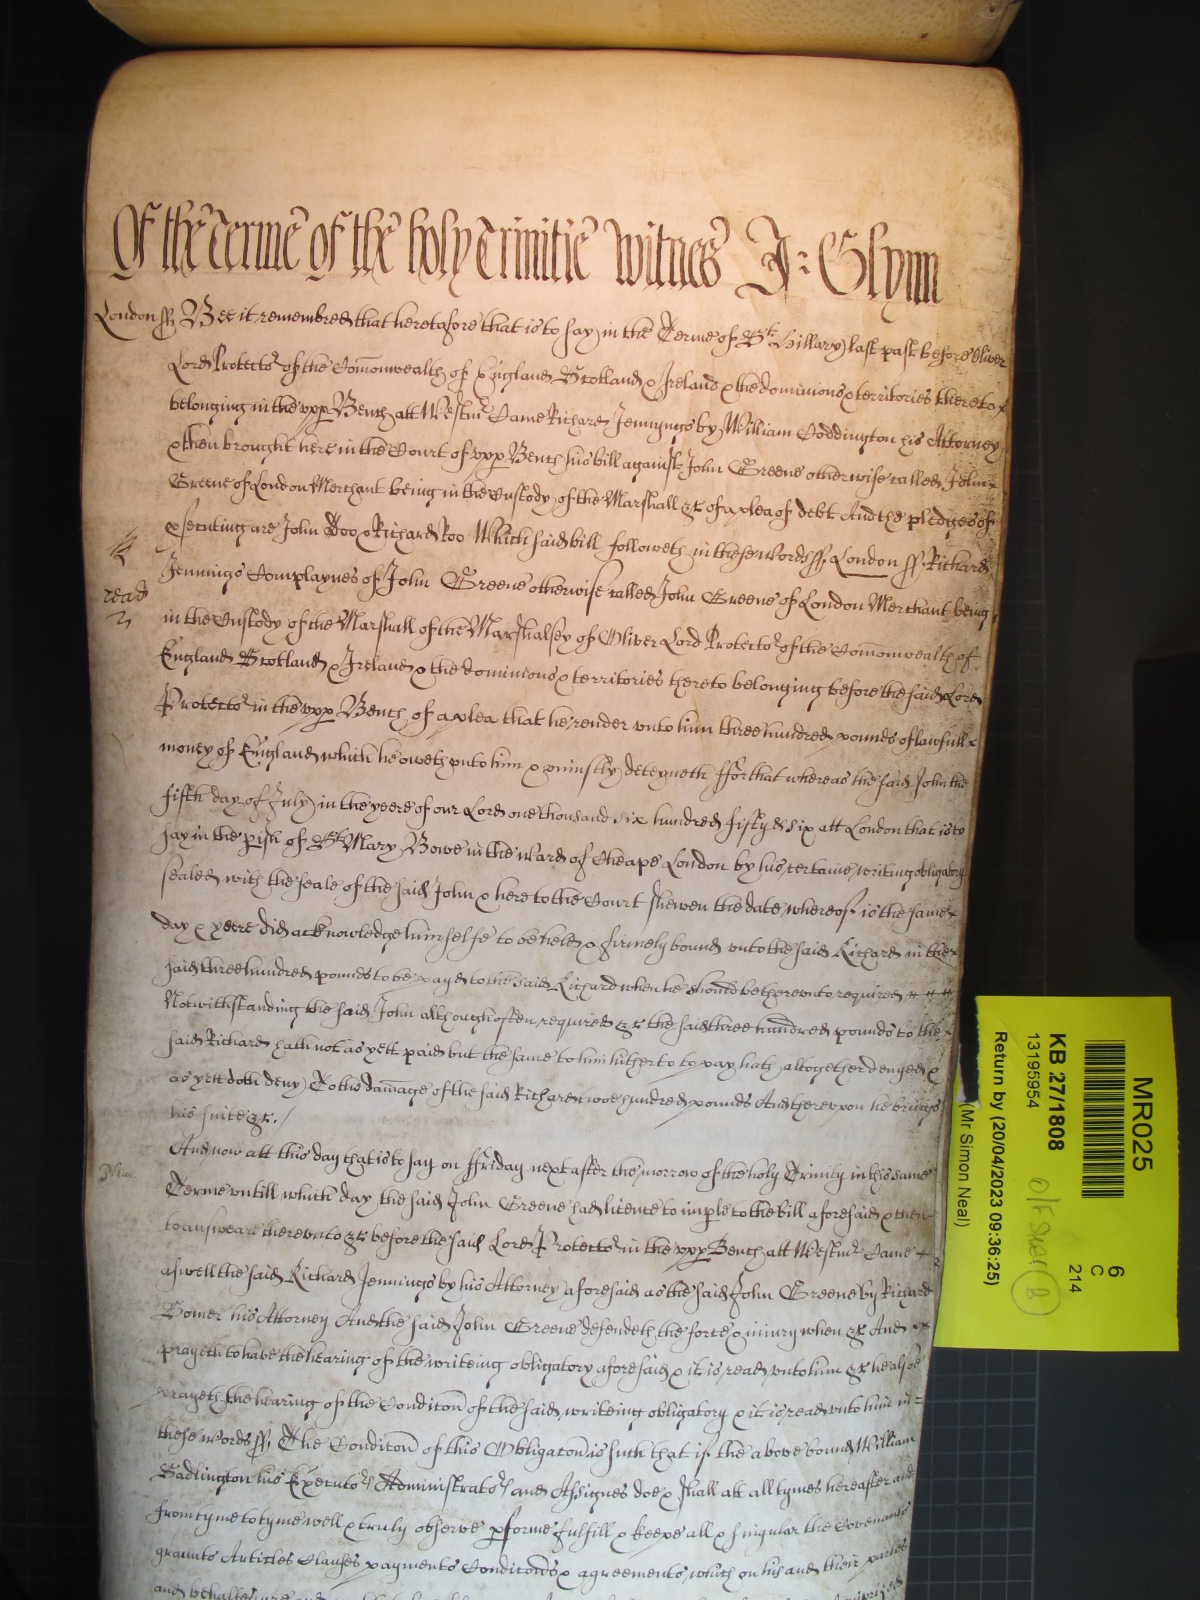 Of the Terme of the holy Trinitie Witnes J: Glynn
London ss Bee it remembred that heretofore that is to say in the Terme of St. Hillary last past before Oliver
Lord Protector of the Comonwealth of England Scotland & Ireland & the dominions & territories thereto
belonging in the upp Bench att Westmr Came Richard Jennyngs by William Coddington his Attorney
& then brought here in the Court of upp Bench his bill against John Greene otherwise called John
Greene of London Merchant being in the Custody of the Marshall &c of a plea of debt And the pledges of
& secuting are John Doo & Richard Roo Which said bill followeth in these words ss London ss Richard
Jennings Complaynes of John Greene otherwise called John Greene of London Merchant being
read
in the Custody of the Marshall of the Marshalsey of Oliver Lord Protector of the Comonwealth of
England Scotland & Ireland & the dominions & territories thereto belonging before the said Lord
Protector in the upp Bench of a plea that he render unto him three hundred pounds of lawfull
money of England which he oweth unto him & uniustly deteyneth ffor that whereas the said John the
fifth day of July in the yeere of our Lord one thousand six hundred fifty & six att London that is to
say in the pish of St Mary Bowe in the ward of Cheape London by his certaine writing obligatory
sealed with the seale of the said John & here to the Court shewen the date whereof is the same
day & yeere did acknowledge himselfe to be held & firmely bound unto the said Richard in the
said three hundred pounds to be payd to the said Richard when he should be thereunto required
Notwithstanding the said John although often required &c the said three hundred pounds to the
said Richard hath not as yett paid but the same to him hitherto to pay hath altogether denyed &
as yett doth deny To the damage of the said Richard hundred pounds And thereupon he brings
his suite &c./
And now att this day that is to say on ffriday next after the morrow of the holy Trinity in this same
Terme untill which day the said John Greene had licence to imple to the bill aforesaid & then
to answeare thereunto &c before the said Lord Protector in the upp Bench att Westmr Came
aswell the said Richard Jennings by his Attorney aforesaid as the said John Greene by Richard
Gomer his Attorney And the said John Greene defendeth the force & iniury when &c And
prayeth to have the hearing of the writeing obligatory aforesaid & it is read unto him &c he alsoe
prayeth the hearing of the Conditon of the said writeing obligatory & it is read unto him in
these words ss The Conditon of this Obligaton is such that if the above bound William
Badlington his Executors Administrators and Assignes doe & shall att all tymes hereafter and
from tyme to tyme well & truly observe pforme fulfill & keepe all & singular the Covenants
graunts Articles Clauses payments Conditons & agreements which on his and their parties
and behalfe are and
MR025
KB 27/1808
13195954
Return by (20/04/2023 09:36:25)
(Mr Simon Neal)
6
C
214
B